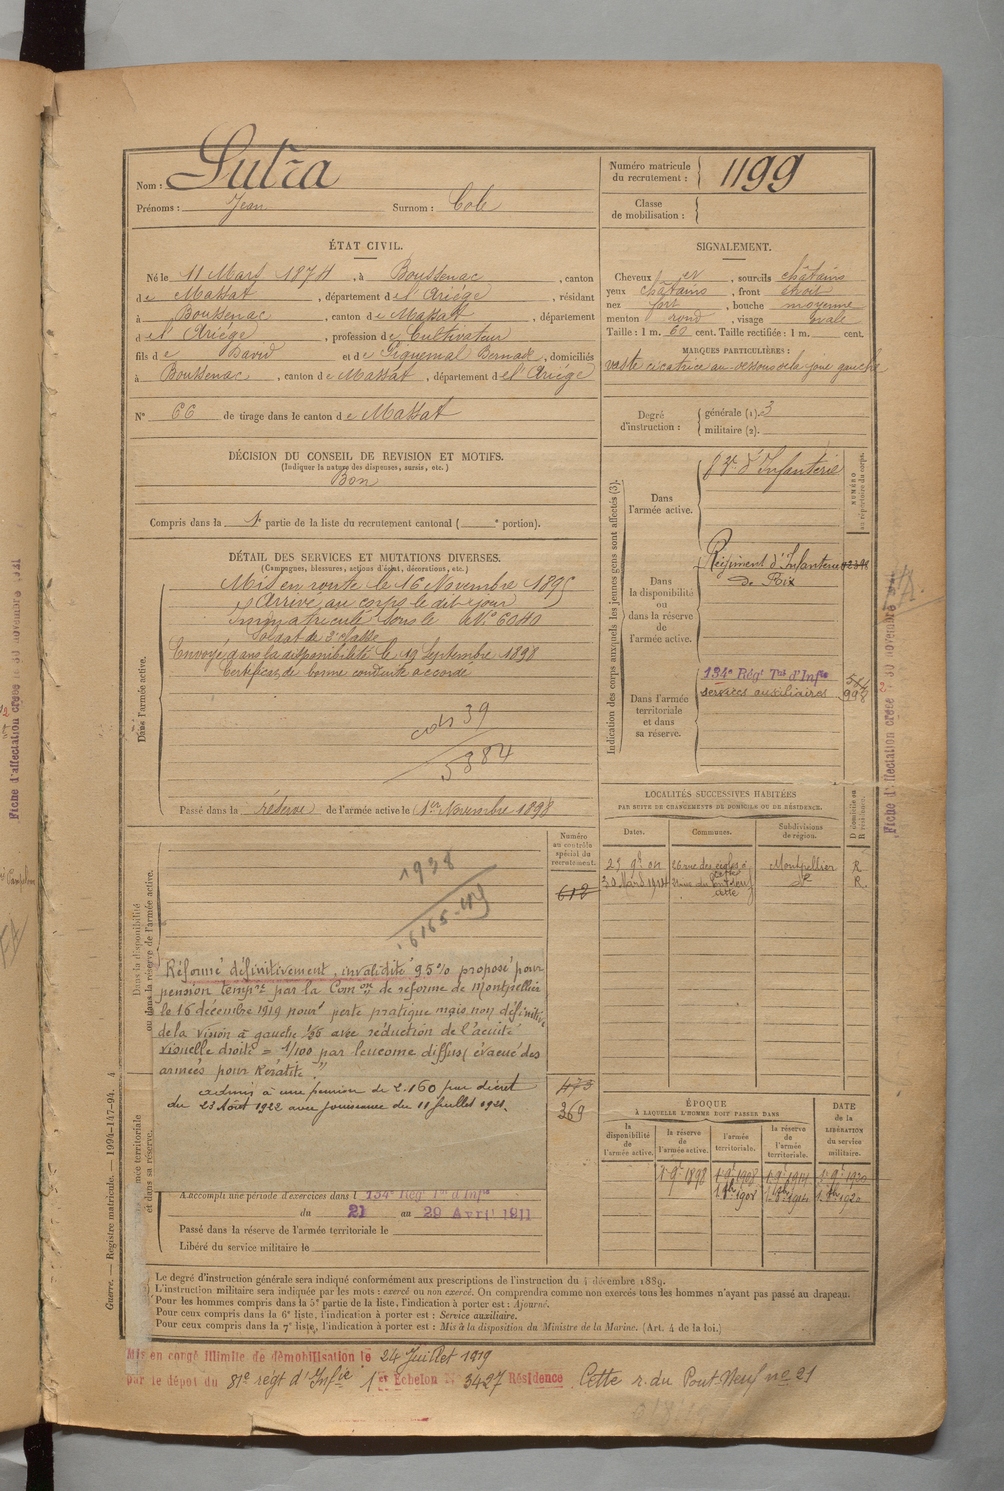 Nom : Sutra
Prénoms : Jean Surnom : Cole
Numéro matricule du recrutement : 1199
Classe de mobilisation :
ÉTAT CIVIL.
Né le 11 Mars 1874, à Boussenac, canton
de Massat, département de l'Ariége, résidant
à Boussenac, canton de Massat, département
de l'Ariége, profession de Cultivateur
fils de David et de Piquemal Bernade, domiciliés
à Boussenac, canton de Massat, département de l'Ariége
N° 66 de tirage dans le canton de Massat
SIGNALEMENT.
Cheveux et, sourcils châtains
yeux châtains, front étroit
nez fort, bouche moyenne
menton rond, visage ovale
Taille : 1 m. 60 cent. Taille rectifiée : 1 m. cent.
MARQUES PARTICULIÈRES :
vaste cicatrice au-dessous de la joue gauche
Degré d'instruction : générale (1). 3
militaire (2).
DÉCISION DU CONSEIL DE REVISION ET MOTIFS.
(Indiquer la nature des dispenses, sursis, etc.)
Bon
Compris dans la 1e partie de la liste du recrutement cantonal ( e portion).
DÉTAIL DES SERVICES ET MUTATIONS DIVERSES.
(Campagnes, blessures, actions d'éclat, décorations, etc.)
Dans l'armée active.
Mis en route le 16 Novembre 1895
Arrivé au corps le dit jour
Immatriculé sous le N° 6040
Soldat de 2e classe
Envoyé dans la disponibilité le 19 Septembre 1898
Certificat de bonne conduite accordé
39
5384
Passé dans la réserve de l'armée active le 1er Novembre 1898
Indication des corps auxquels les jeunes gens sont affectés (3).
NUMÉRO au répertoire du corps.
Dans l'armée active.
d'Infanterie
Dans la disponibilité ou dans la réserve de l'armée active.
Régiment d'Infanterie
de Foix
Dans l'armée territoriale et dans sa réserve.
134e Rég' Tal d'Infie
services auxiliaires
LOCALITÉS SUCCESSIVES HABITÉES
PAR SUITE DE CHANGEMENTS DE DOMICILE OU DE RÉSIDENCE.
Dates. Communes. Subdivisions de région. D domicile ou R résidence.
26 rue des Cette Montpellier R
30 Mars 1914 21 rue du Pont neuf Cette do R.
Dans la disponibilité ou dans la réserve de l'armée active.
Numéro au contrôle spécial du recrutement.
612
1938
Réformé définitivement, invalidité 95% proposé pour
pension tempre par la Comon de réforme de Montpellier
le 16 décembre 1919 pour perte pratique mais non définitive
de la vision à gauche avec réduction de l'acuité
visuelle droite = 1/100 par leucome diffus (évacué des
armées pour Kératite"
admis à une pension de 2.160 par décret
du 23 Août 1922 avec jouissance du 11 Juillet 1921.
473
369
ÉPOQUE
À LAQUELLE L'HOMME DOIT PASSER DANS
la disponibilité de l'armée active. la réserve de l'armée active. l'armée territoriale. la réserve de l'armée territoriale. DATE de la LIBÉRATION du service militaire.
1er 9e 1898 1er 9e 1908 1er 9e 1914 1er 9e 1920
1er 8bre 1908 1er 8bre 1914 1er 8bre 1920
A accompli une période d'exercices dans l 134e Rég' Tal d'Infie
du 21 au 29 Avril 1911
Passé dans la réserve de l'armée territoriale le
Libéré du service militaire le
Le degré d'instruction générale sera indiqué conformément aux prescriptions de l'instruction du 4 décembre 1889.
L'instruction militaire sera indiquée par les mots : exercé ou non exercé. On comprendra comme non exercés tous les hommes n'ayant pas passé au drapeau.
Pour les hommes compris dans la 5e partie de la liste, l'indication à porter est : Ajourné.
Pour ceux compris dans la 6e liste, l'indication à porter est : Service auxiliaire.
Pour ceux compris dans la 7e liste, l'indication à porter est : Mis à la disposition du Ministre de la Marine. (Art. 4 de la loi.)
Mis en congé illimité de démobilisation le 24 Juillet 1919
par le dépôt du 81e régt d'Infie 1er Echelon N° 3427 Résidence Cette r. du Pont-Neuf n° 21
Guerre. — Registre matricule. — 1994-147-94. 4
Fiche d'affectation créée le 30 novembre 1921